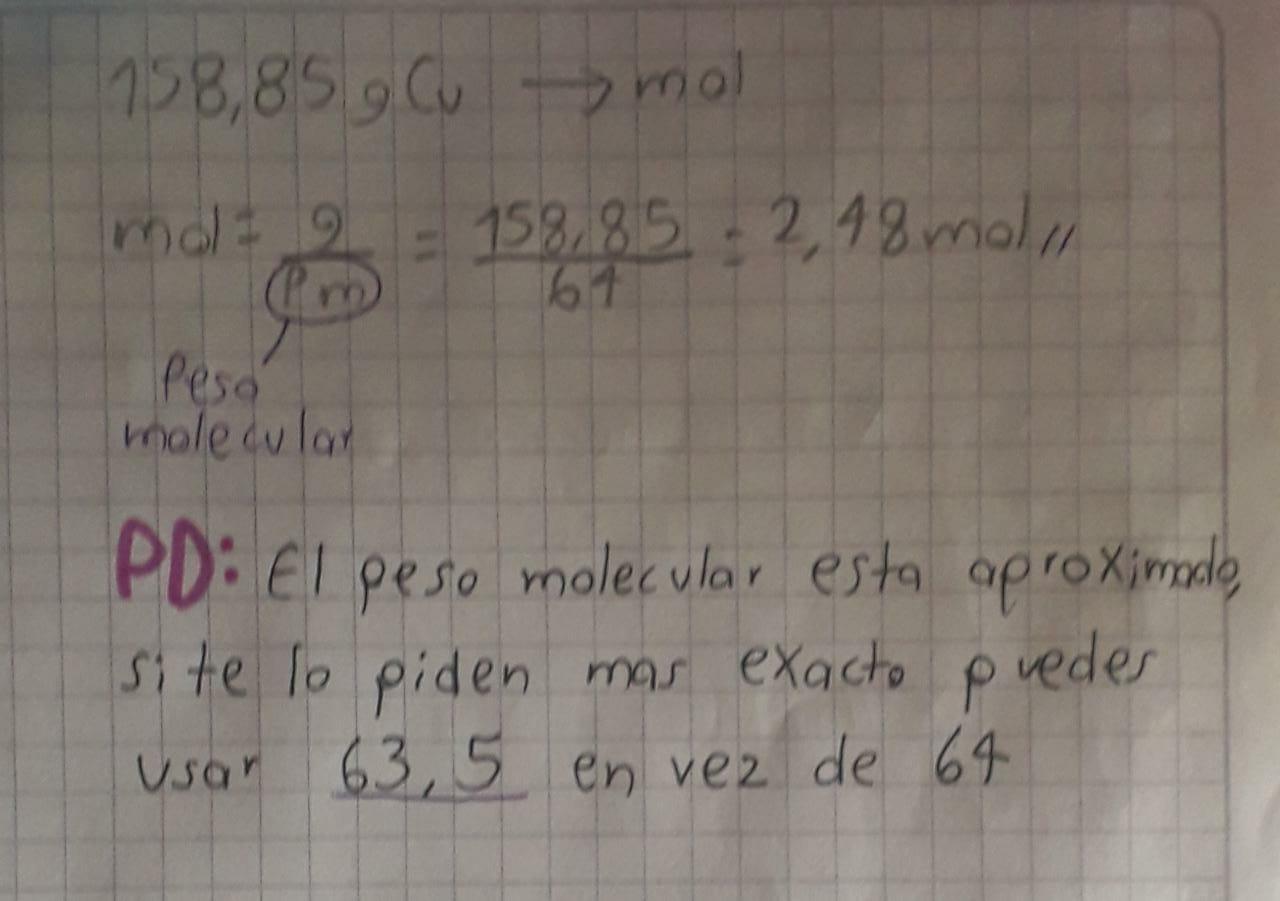 158,85 g Cu → mol
mol = g/Pm = 158,85/64 = 2,48 mol //
Peso
molecular
PD: El peso molecular esta aproximado,
si te lo piden mas exacto puedes
usar 63,5 en vez de 64